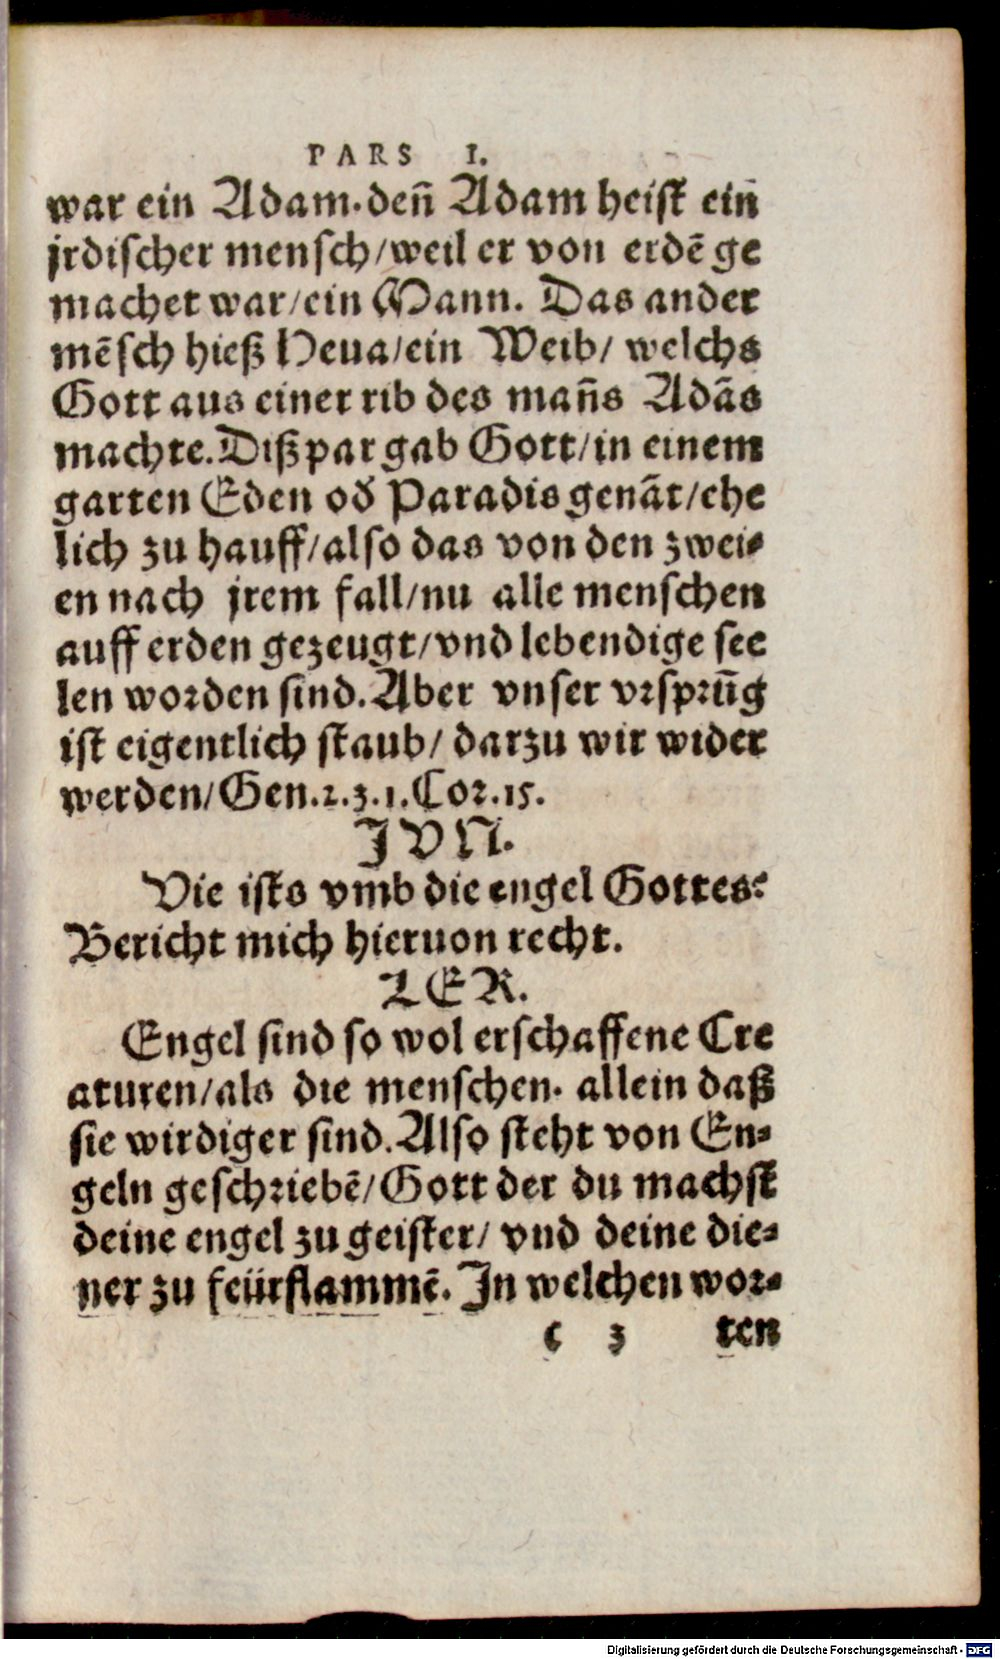 PARS I.
war ein Adam. deñ Adam heist ein
jrdischer mensch/weil er von erdē ge
machet war/ein Mann. Das ander
mēsch hieß Heua/ein Weib/ welchs
Gott aus einer rib des mañs Adās
machte. Diß par gab Gott/in einem
garten Eden oď Paradis genāt/ehe
lich zu hauff/also das von den zwei-
en nach jrem fall/nu alle menschen
auff erden gezeugt/vnd lebendige see
len worden sind. Aber vnser vrsprūg
ist eigentlich staub/ darzu wir wider
werden/Gen.2.3.1.Cor.15.
JVN.
Vie ists vmb die engel Gottes?
Bericht mich hieruon recht.
LER.
Engel sind so wol erschaffene Cre
aturen/als die menschen. allein daß
sie wirdiger sind. Also steht von En-
geln geschriebē/Gott der du machst
deine engel zu geister/ vnd deine die-
ner zu feürflammē. In welchen wor-
c 3 ten
Digitalisierung gefördert durch die Deutsche Forschungsgemeinschaft - DFG